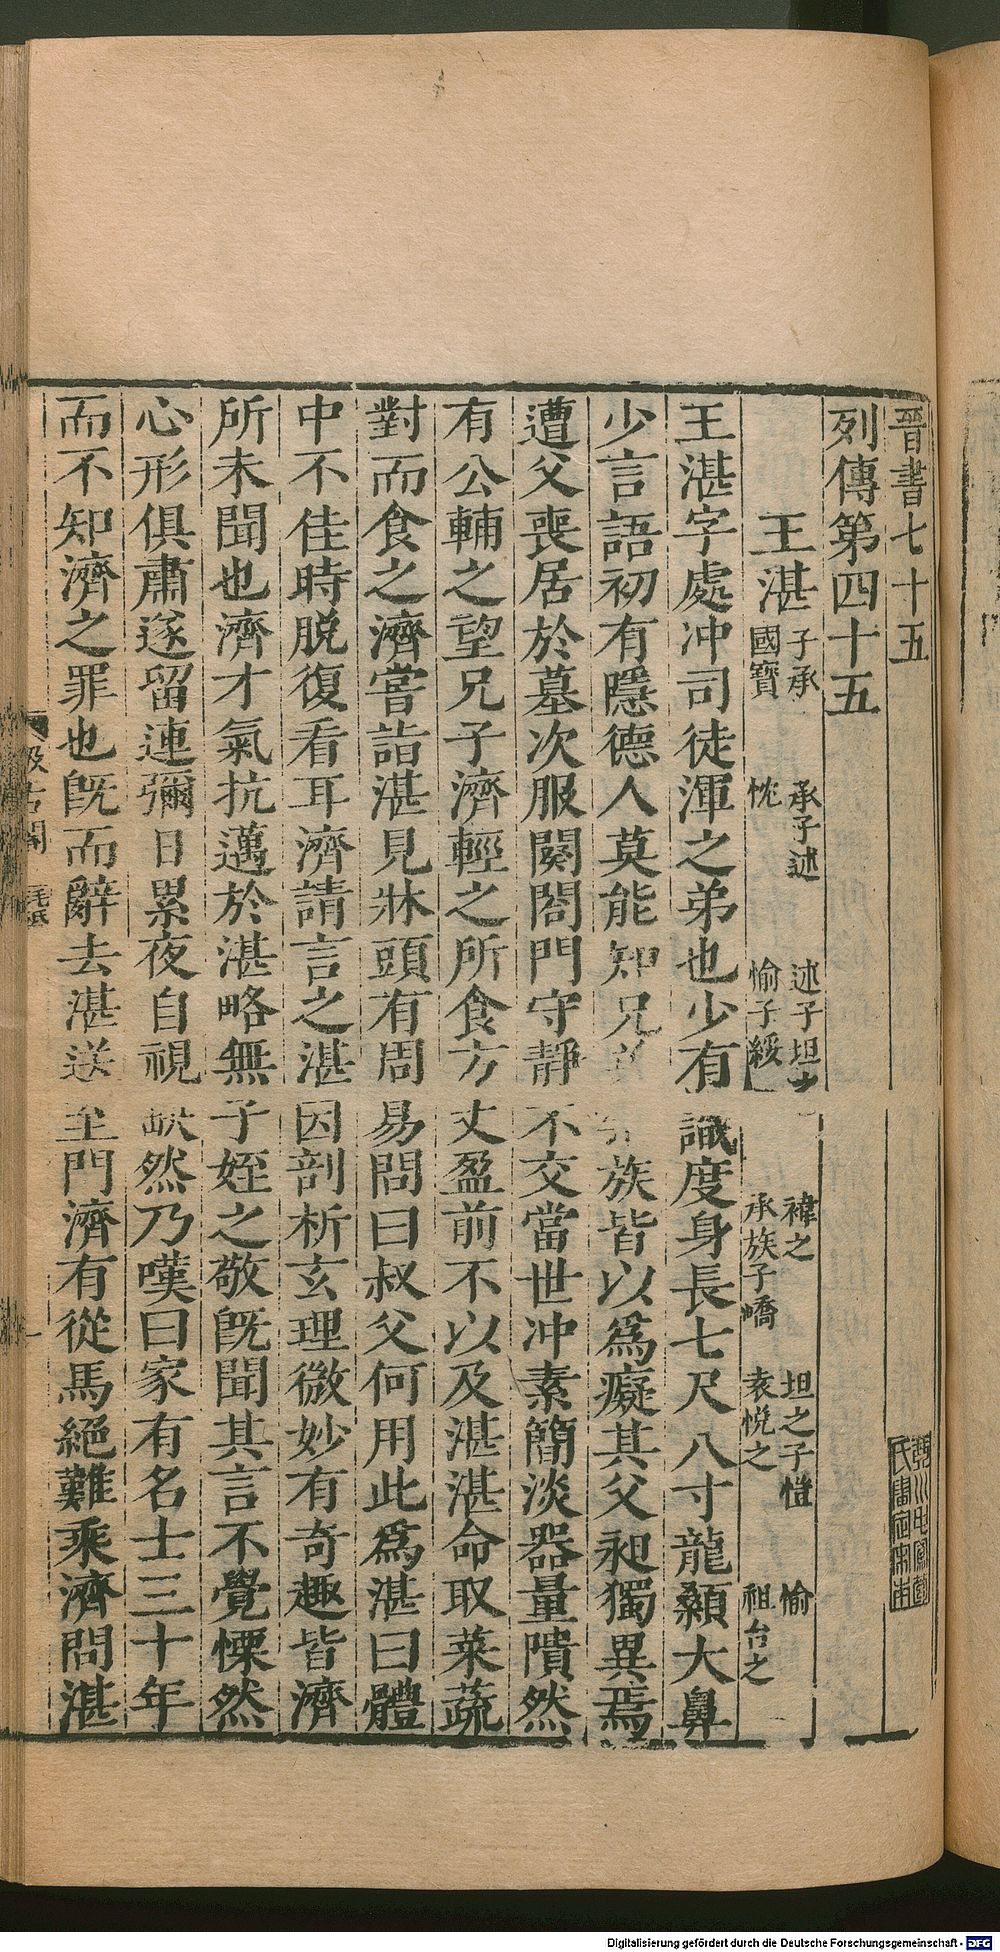 晉書七十五
列傳第四十五
王湛 子承 承子述 述子坦之 禕之 坦之子愷 愉
國寶 忱 愉子綏 承族子嶠 袁悅之 祖台之
王湛字處冲司徒渾之弟也少有識度身長七尺八寸龍顙大鼻
少言語初有隱德人莫能知兄弟宗族皆以爲癡其父昶獨異焉
遭父喪居於墓次服闋閤門守靜不交當世冲素簡淡器量隤然
有公輔之望兄子濟輕之所食方丈盈前不以及湛湛命取菜蔬
對而食之濟嘗詣湛見牀頭有周易問曰叔父何用此爲湛曰體
中不佳時脫復看耳濟請言之湛因剖析玄理微妙有奇趣皆濟
所未聞也濟才氣抗邁於湛略無子姪之敬旣聞其言不覺慄然
心形俱肅遂留連彌日累夜自視缺然乃嘆曰家有名士三十年
而不知濟之罪也旣而辭去湛送至門濟有從馬絕難乘濟問湛
汲古閣
毛氏
Digitalisierung gefördert durch die Deutsche Forschungsgemeinschaft - DFG